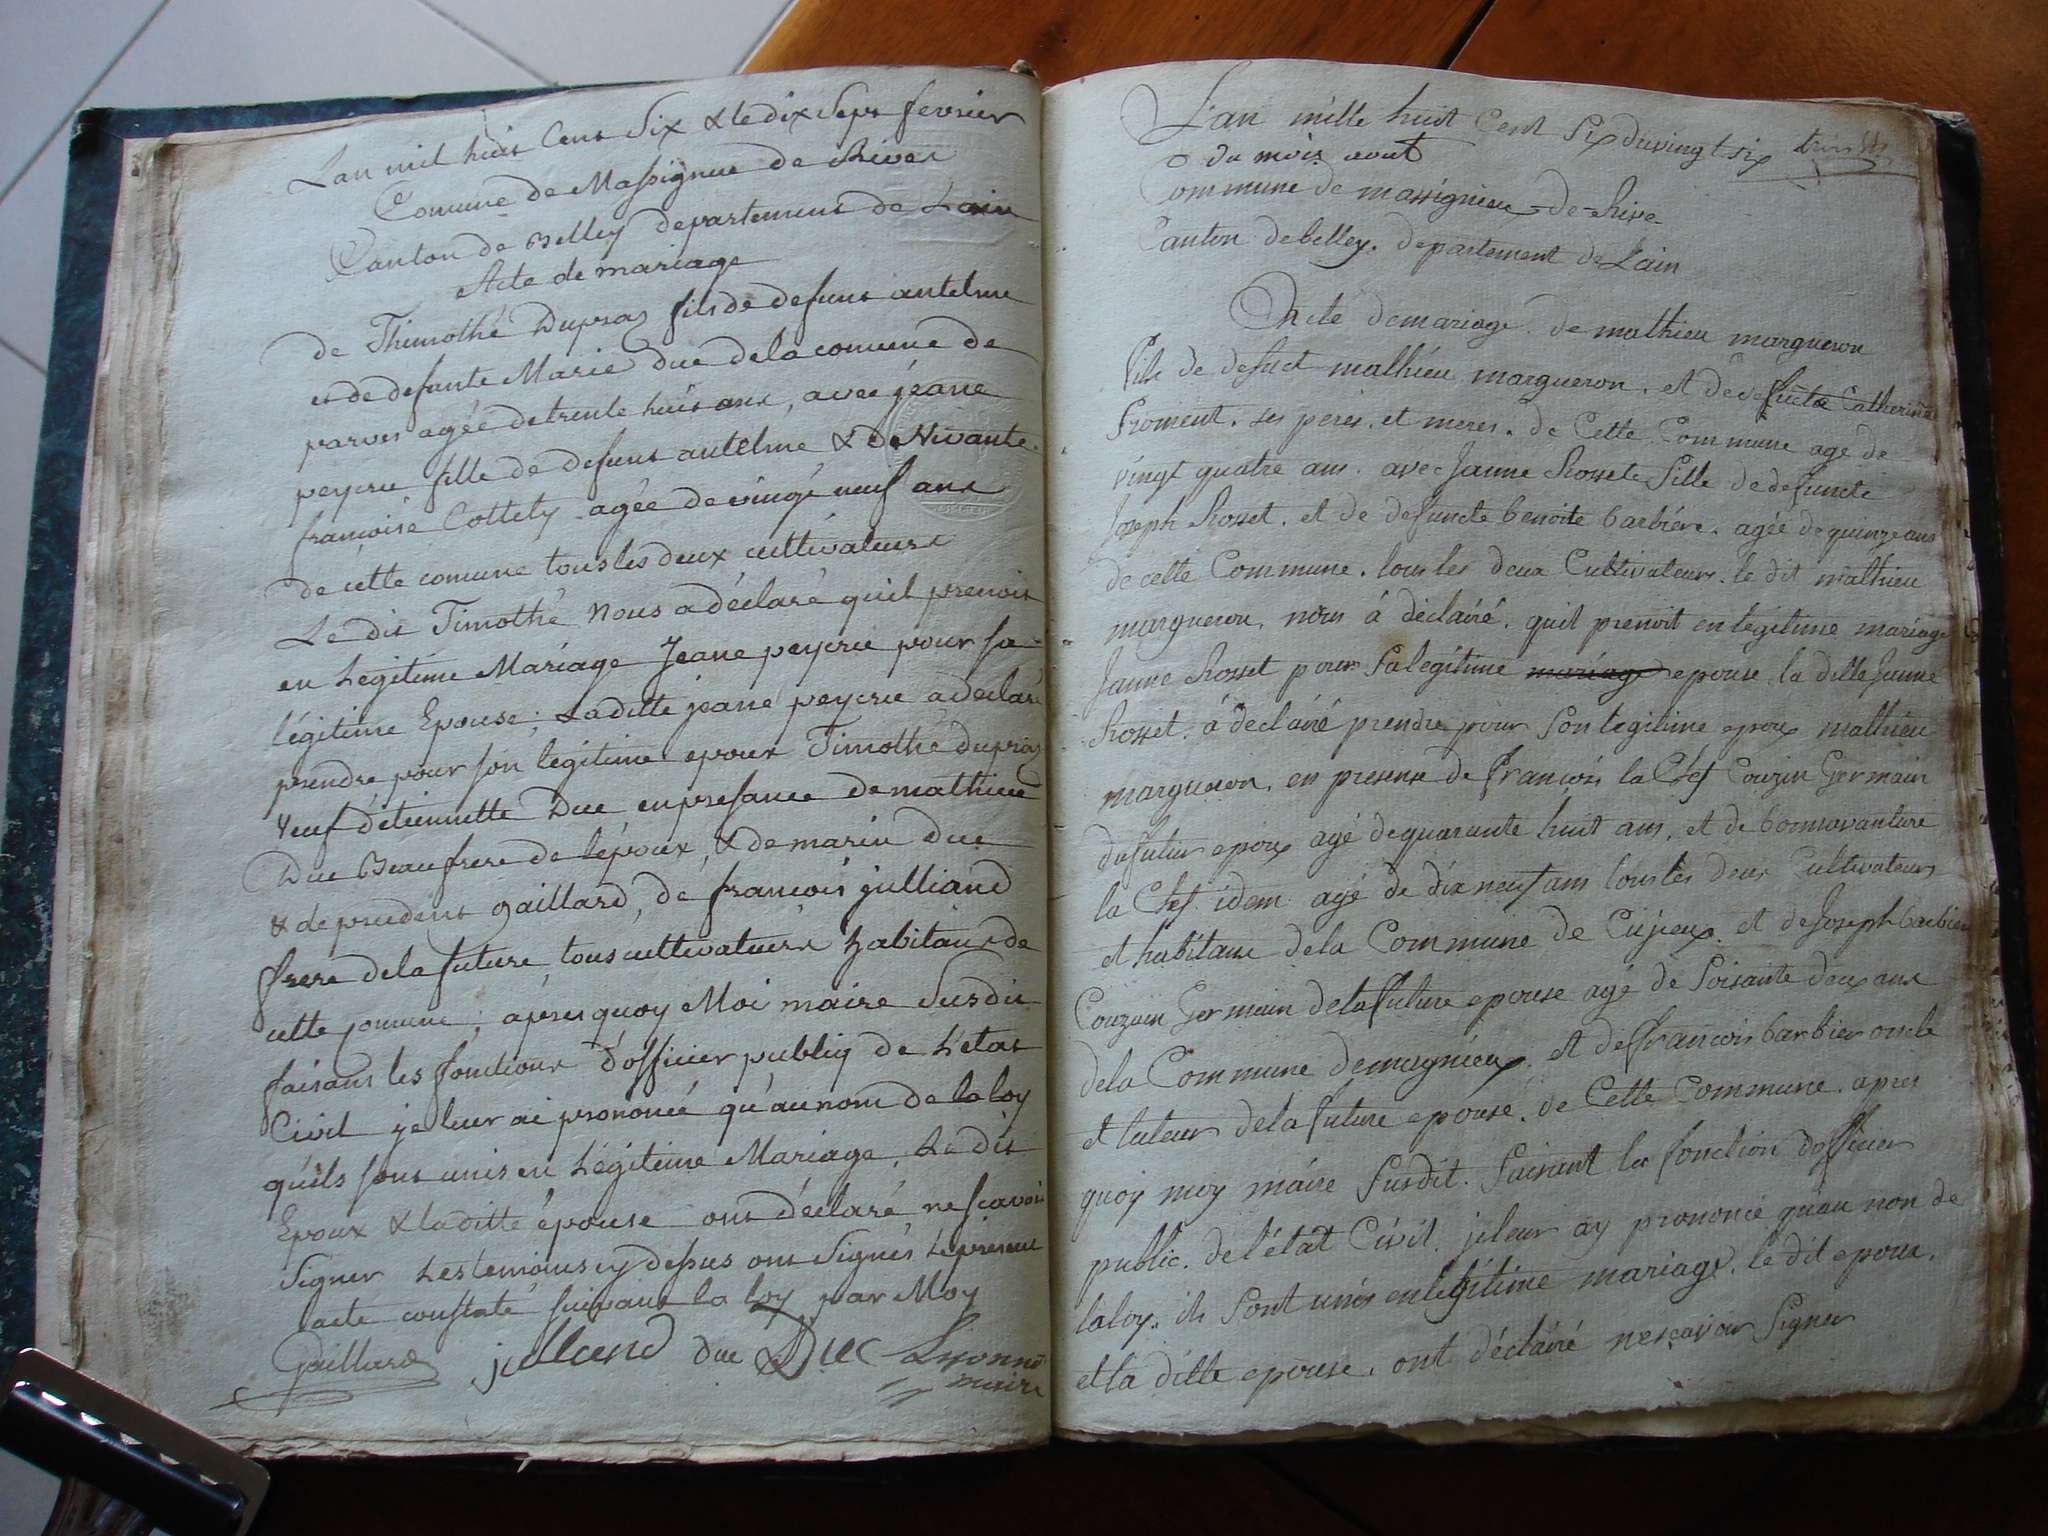 Lan mil huit Cent Six & le dix Sept fevrier
Comune de Massignieu de Rives
Canton de Belley departement de Lain
Acte de mariage
de Thimothé Dupraz fils de defunt antelme
et de defunte Marie Duc de la comune de
parves agée de trente huit ans, avec jeane
peyrie fille de defunt antelme & de Vivante
francoise Cottely agée de vingt neuf ans
de cette comune tous les deux cultivateurs
Le dit Timothé Nous a déclaré quil prenoit
en Légitime Mariage Jeane peyrie pour sa
légitime Epouse; Laditte jeane peyrie a déclaré
prendre pour son légitime epoux Timothé dupraz
veuf d'etiennette Duc en presance de mathieu
Duc Beaufrere de l'époux, & de marin Duc
& de prudent gaillard, de francois julliand
frere de la future tous cultivateurs habitans de
cette comune; apres quoy Moi maire Susdit
faisant les fonctions d'officier publiq de L'etat
Civil je leur ai prononcé qu'au nom de la loy
quils sont unis en Légitime Mariage, Le dit
Epoux & laditte épouse ont déclaré ne scavoir
Signer Les temoins cy dessus ont Signés Le present
acte constaté suivant la loy par Moy
Gaillard julliand duc Duc Lyonne
maire
Lan mille huit Cent Six du vingt six
du mois aout
Commune de massignieu-de-Rive
Canton de belley. departement de Lain
Acte de mariage. de mathieu margueron
fils de defuct mathieu margueron. et de defuncte Catherine
froment. ses peres. et meres. de Cette Commune age de
vingt quatre ans. avec Janne Rosset fille de defuncte
Joseph Rosset. et de defuncte benoite barbiere. agée de quinze ans
de cette Commune. tous les deux Cultivateurs. le dit mathieu
margueron, nous á déclairé. quil prenoit en légitime mariage
Janne Rosset pour sa legitime mariage epouse, la ditte Janne
Rosset. á declairé prendre pour son legitime epoux mathieu
margueron, en presense de francois la Clef Couzin Germain
du futur epoux agé de quarante huit ans, et de bonnavanture
la Clef. idem agé de dix neuf ans tous les deux Cultivateurs
et habitans de la Commune de Cujeux. et de Joseph barbier
Couzain Germain de la future epouse agé de soisante deux ans
de la Commune de magnieux. et de francois barbier oncle
et tuteur de la future epouse. de Cette Commune. apres
quoy moy maire susdit. faisant les fonction dofficier
public. de l'état Civil. je leur ay prononcé qu'au non de
la loy. ils sont unis en légitime mariage. le dit epoux.
et la ditte epouse. ont déclairé nescavoir signer